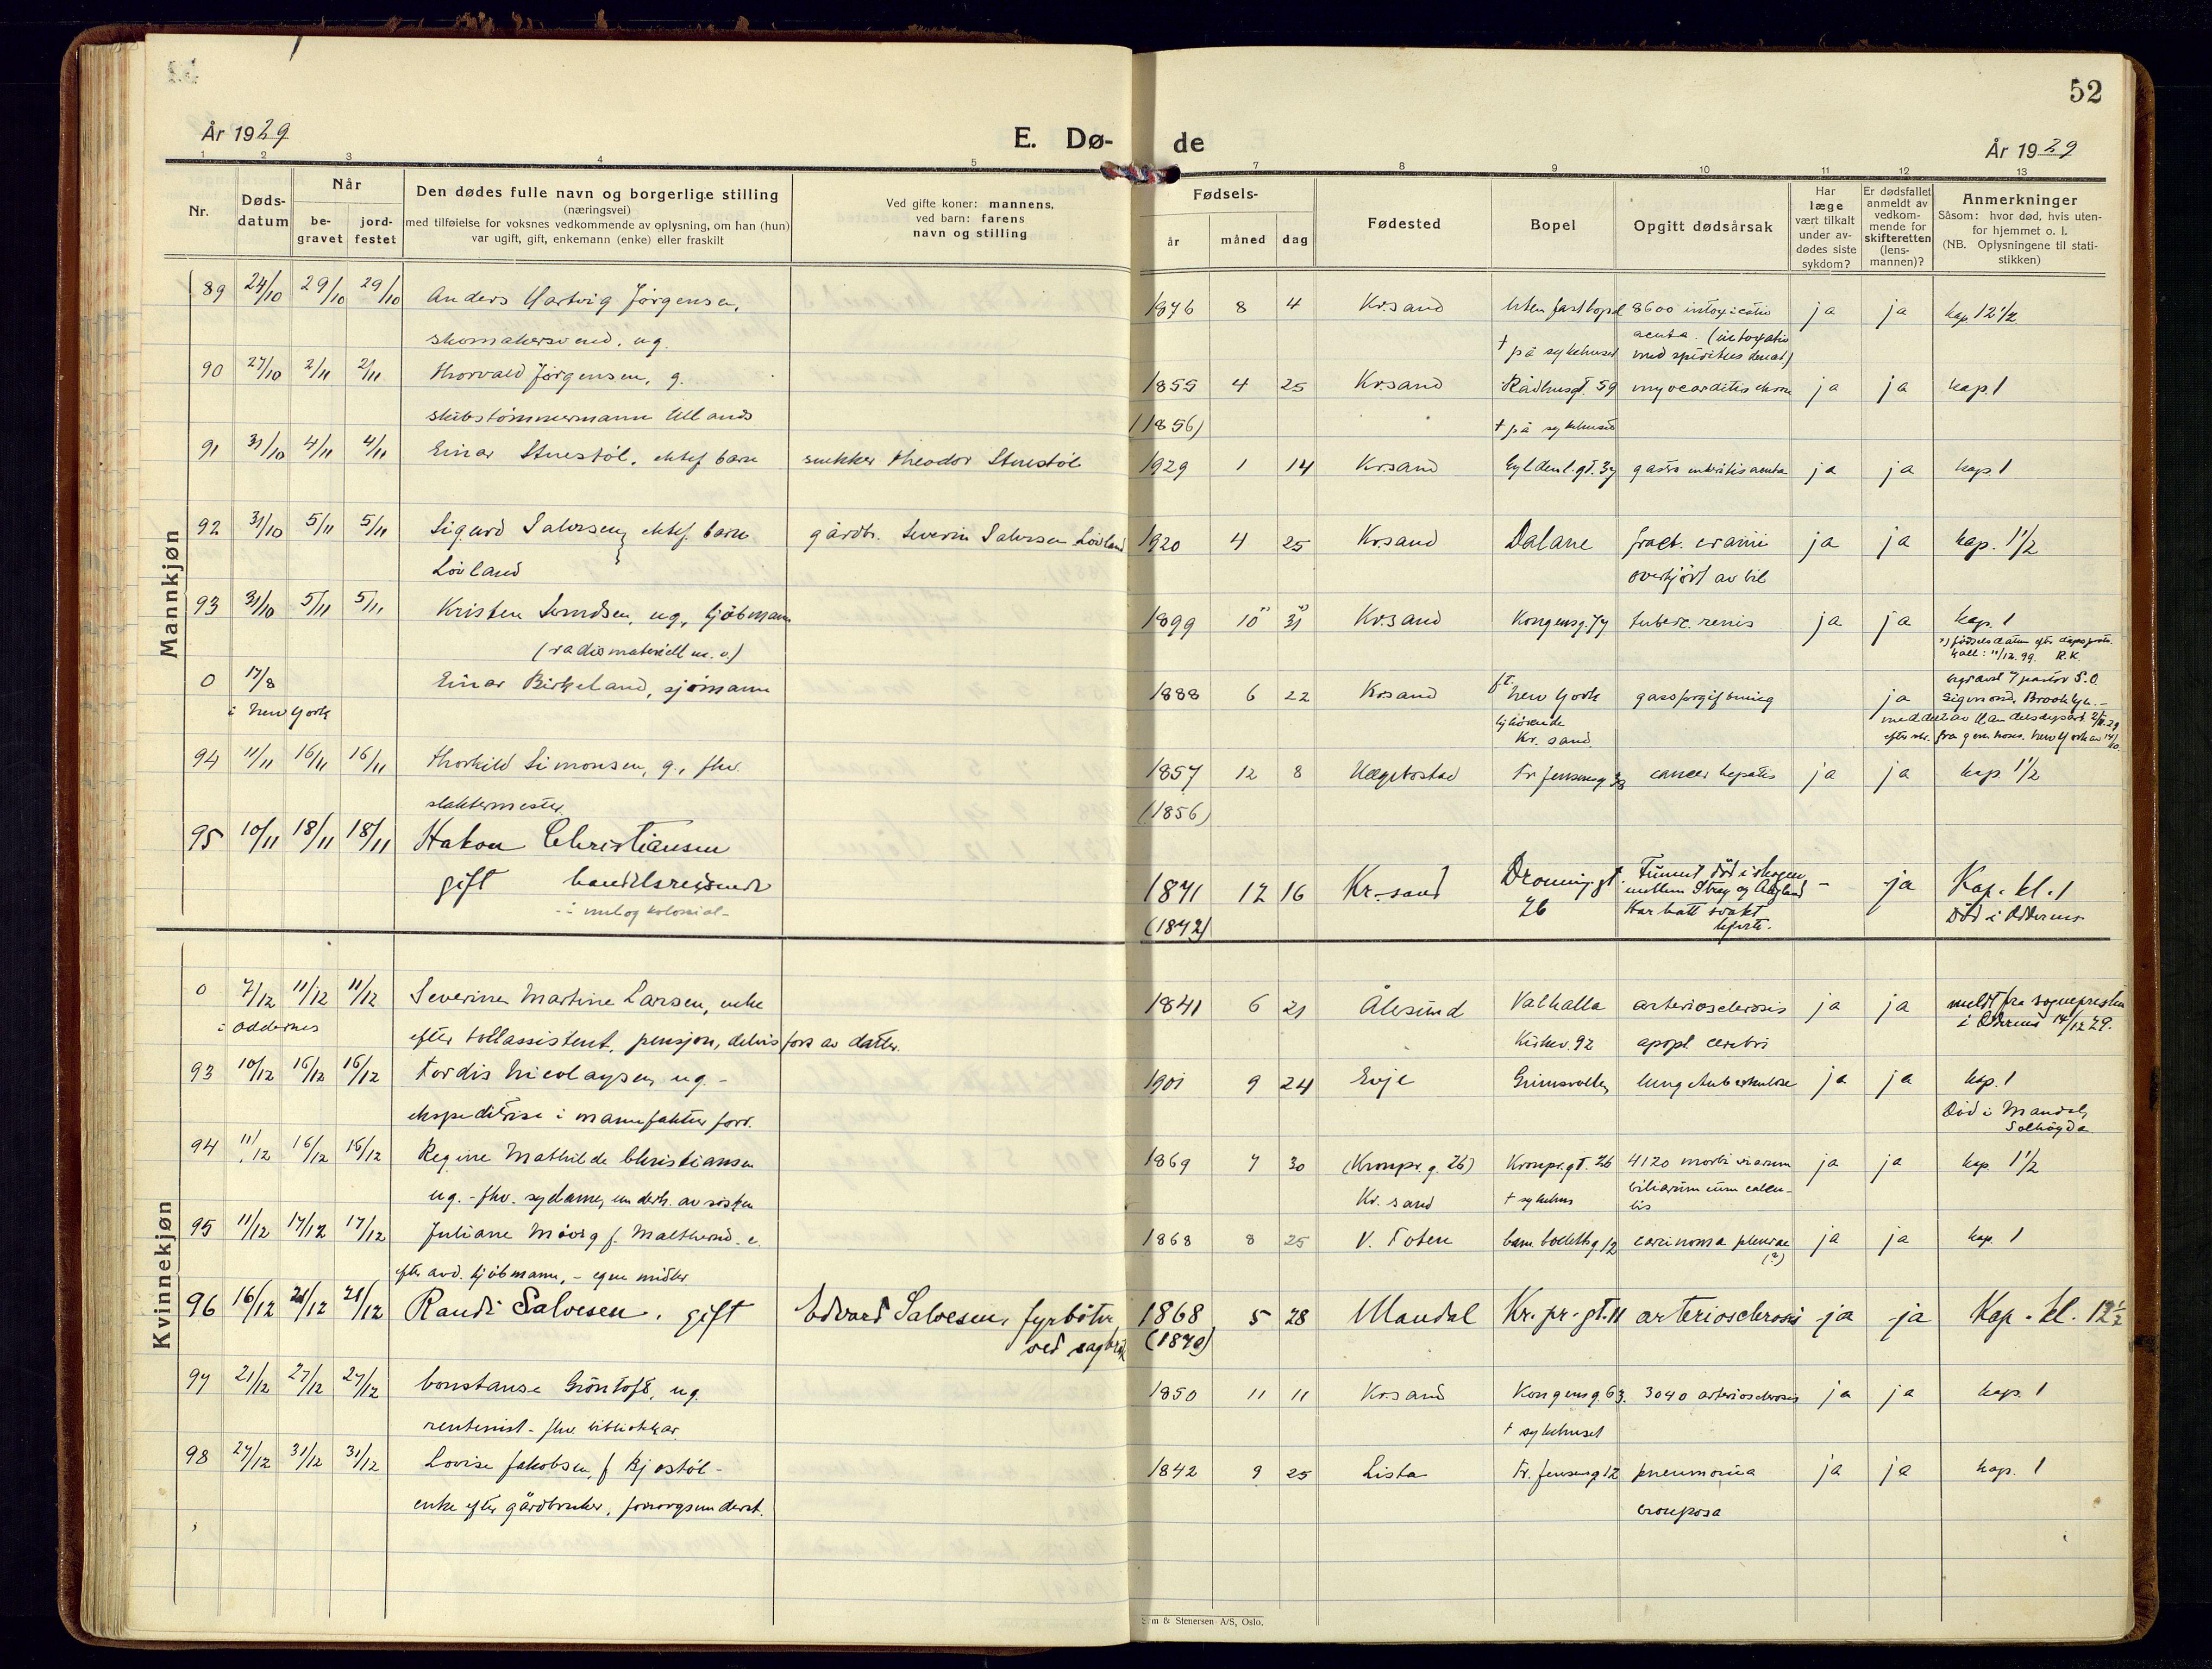 52
År 1929
E. Dø-
de
År 1929
1 2 3 4 5 7 8 9 10 11 12 13
Nr.
Døds-
datum
Når
be-
gravet
jord-
festet
Den dødes fulle navn og borgerlige stilling
(næringsvei)
med tilføielse for voksnes vedkommende av oplysning, om han (hun)
var ugift, gift, enkemann (enke) eller fraskilt
Ved gifte koner: mannens,
ved barn: farens
navn og stilling
Fødsels-
år
måned
dag
Fødested
Bopel
Opgitt dødsårsak
Har
læge
vært tilkalt
under av-
dødes siste
sykdom?
Er dødsfallet
anmeldt av
vedkom-
mende for
skifteretten
(lens-
mannen)?
Anmerkninger
Såsom: hvor død, hvis uten-
for hjemmet o. l.
(NB. Oplysningene til stati-
stikken)
Mannkjøn
89 24/10 29/10 29/10 Anders Hartvig Jørgensen, 1876 8 4 Kr.sand Uten fast bopel 8600 intoxicatio ja ja kap. 12 1/2
skomakersvend, ug. † på sykehuset acuta. (intoxatio
med spiritus denat)
90 27/10 2/11 2/11 Thorvald Jørgensen, g. 1855 4 25 Kr.sand Rådhusgt. 59 myocarditis chron ja ja kap. 1
skibstømmermann (1856) † på sykehuset
91 31/10 4/11 4/11 Einar Stuestøl, ektef barn snekker Theodor Stuestøl 1929 1 14 Kr.sand Gyldenl.gt. 37 gastro enteritis acuta ja ja kap. 1
92 31/10 5/11 5/11 Sigurd Salvesen, ektef. barn gårdbr. Severin Salvesen Løvland 1920 4 25 Kr.sand Dalane fract. cranii ja ja kap. 1 1/2
Løvland overkjørt av bil
93 31/10 5/11 5/11 Kristen Svendsen, ug, kjøbmann 1899 10 31 Kr.sand Kongensg. 74 tuberc. renis ja ja kap. 1
(radiomateriell m. v.) x) fødselsdatum efter dåpsprot.
11/12. 99. R.K.
0 17/8 Einar Birkeland, sjømann 1888 6 22 Kr.sand New York gassforgiftning ja begravet pastor S.O.
i New York hjhørende Sigmond, Brooklyn. –
Kr. sand meddelt av Handelsdepart.
efter skr. fra gen.kons. New York av 14/10.
94 11/11 16/11 16/11 Thorkild Simonsen, g., fhv. 1857 12 8 Hægebostad Fr. Jensensg. 38 cancer hepatis ja ja kap. 1 1/2
slaktermester (1856)
95 10/11 18/11 18/11 Hakon Christiansen
gift handelsreisende 1871 12 16 Kr.-sand Dronning.gt. 26 Funnet død i skogen – ja Kap. kl. 1
- i mel og kolonial - (1872) mellem Stray og Augland Død i Oddernes
Har hatt svakt
hjerte.
Kvinnekjøn
0 7/12 11/12 11/12 Severine Martine Larsen, enke 1841 6 21 Ålesund Valhalla arteriosclerosis ja ja meldt fra sognepresten
i Oddernes efter tollassistent, pensjon, delvis fors av datter. Kirkev. 92 apopl. cerebri i Oddernes 14/12 29.
93 10/12 16/12 16/12 Tordis Nicolaysen, ug. - 1901 9 24 Evje Grimsvollen lungetuberkulose ja ja kap. 1
ekspeditrise i manufaktur forr. Død i Mandal,
Solhøgda
94 11/12 16/12 16/12 Regine Mathilde Christiansen 1869 7 30 (Kronpr. g. 26) Kronpr.gt. 26 4120 morbi viarum ja ja kap. 1 1/2
ug. - fhv. sydame, underh. av søsken Kr. sand † sykehus biliarum cum calcu-
lis
95 11/12 17/12 17/12 Juliane Moorg f. Maltherud. e. 1868 8 25 V. Toten 12 carcinoma pleurae ja ja kap. 1
efter avd. kjøbmann, - egne midler (?)
96 16/12 21/12 21/12 Randi Salvesen, gift Edvard Salvesen, fyrbøter 1868 5 28 Mandal Kr. pr. gt. 11 arteriosclerosis ja ja Kap. kl. 12 1/2
ved sagbruk (1870)
97 21/12 27/12 27/12 Constanse Grøntoft, ug. 1850 11 11 Kr.sand Kongensg. 63. 3040 arteriosclerosis ja ja kap. 1
rentenist - fhv. bibliotekar. † sykehuset
98 27/12 31/12 31/12 Lovise Jakobsen, f. Bjostøl - 1842 9 25 Lista Fr. Jensensg 12 pneumonia ja ja kap. 1
enke efter gårdbruker, forsorgsunderst. crouposa
& Stenersen A/S, Oslo.